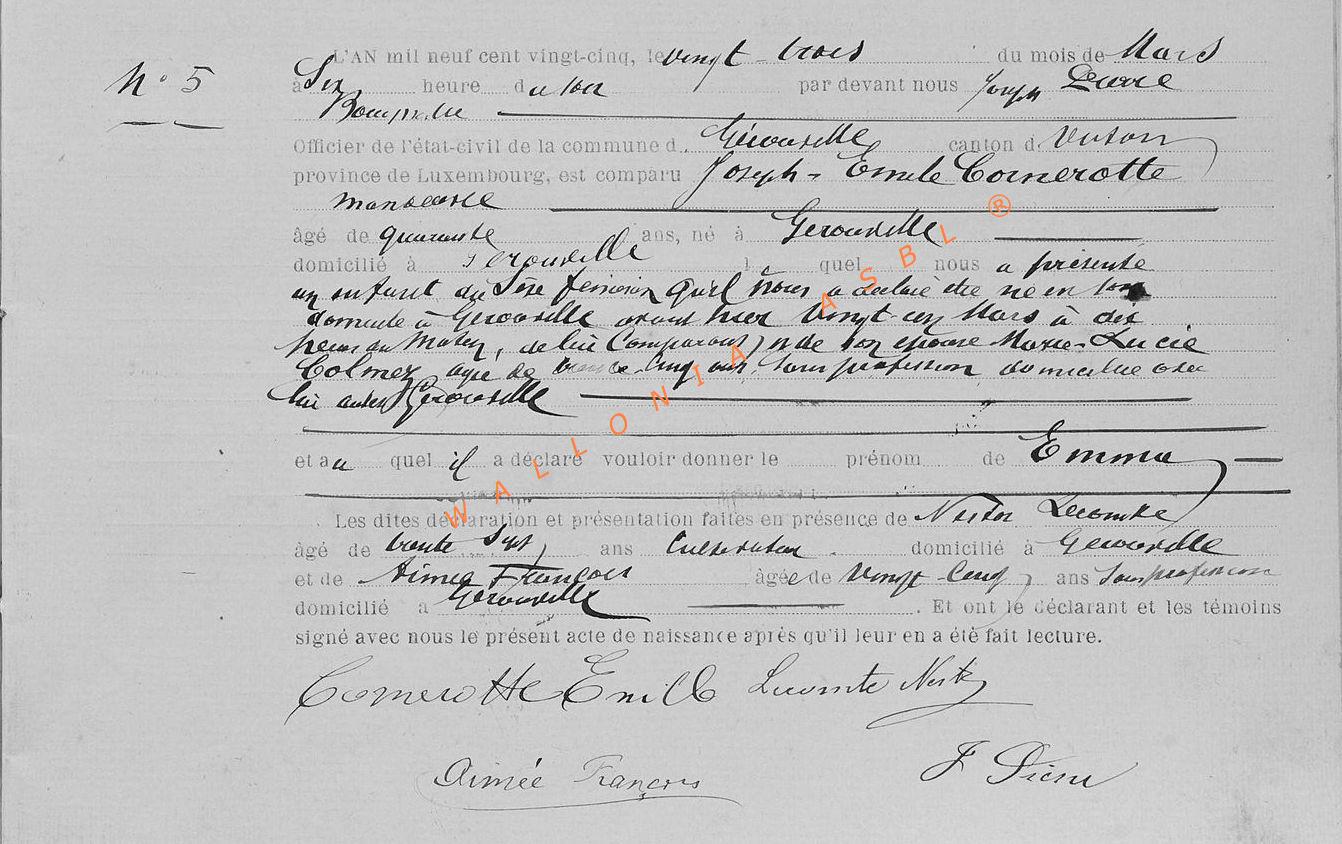 N° 5
L'AN mil neuf cent vingt-cinq, le vingt-trois du mois de Mars
à Six heure du soir par devant nous Joseph Pierre
Bourgmestre
Officier de l'état-civil de la commune d. Gérouville canton d. Virton
province de Luxembourg, est comparu Joseph-Emile Comerotte
âgé de quarante ans, né à Gérouville
domicilié à Gérouville l quel nous a présenté
un enfant du sexe féminin qu'il nous a déclaré être né en son
domicile à Gérouville avant hier vingt-un Mars à dix
heures du matin, de lui Comparant, et de son épouse Marie-Lucie
Colmez, agée de trente-cinq ans, sans profession domiciliée avec
lui audit Gérouville
et au quel il a déclaré vouloir donner le prénom de Emma
Les dites déclaration et présentation faites en présence de Nestor Lecomte
âgé de trente Sept ans Cultivateur domicilié à Gérouville
et de Aimée François âgée de vingt-cinq ans Sans profession
domicilié a Gérouville. Et ont le déclarant et les témoins
signé avec nous le présent acte de naissance après qu'il leur en a été fait lecture.
Comerotte Emile Lecomte Nestor
Aimée François J Pierre
WALLONIA ASBL ®